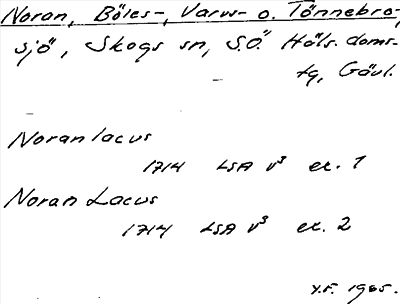 Noran, Böles-, Varus- o. Tönnebro-,
sjö, Skogs sn, S.Ö. Häls. doms-
tg, Gävl.
Noran lacus
1714 LSA V³ ex. 1
Noran Lacus
1714 LSA V³ ex. 2
Y.F. 1965.